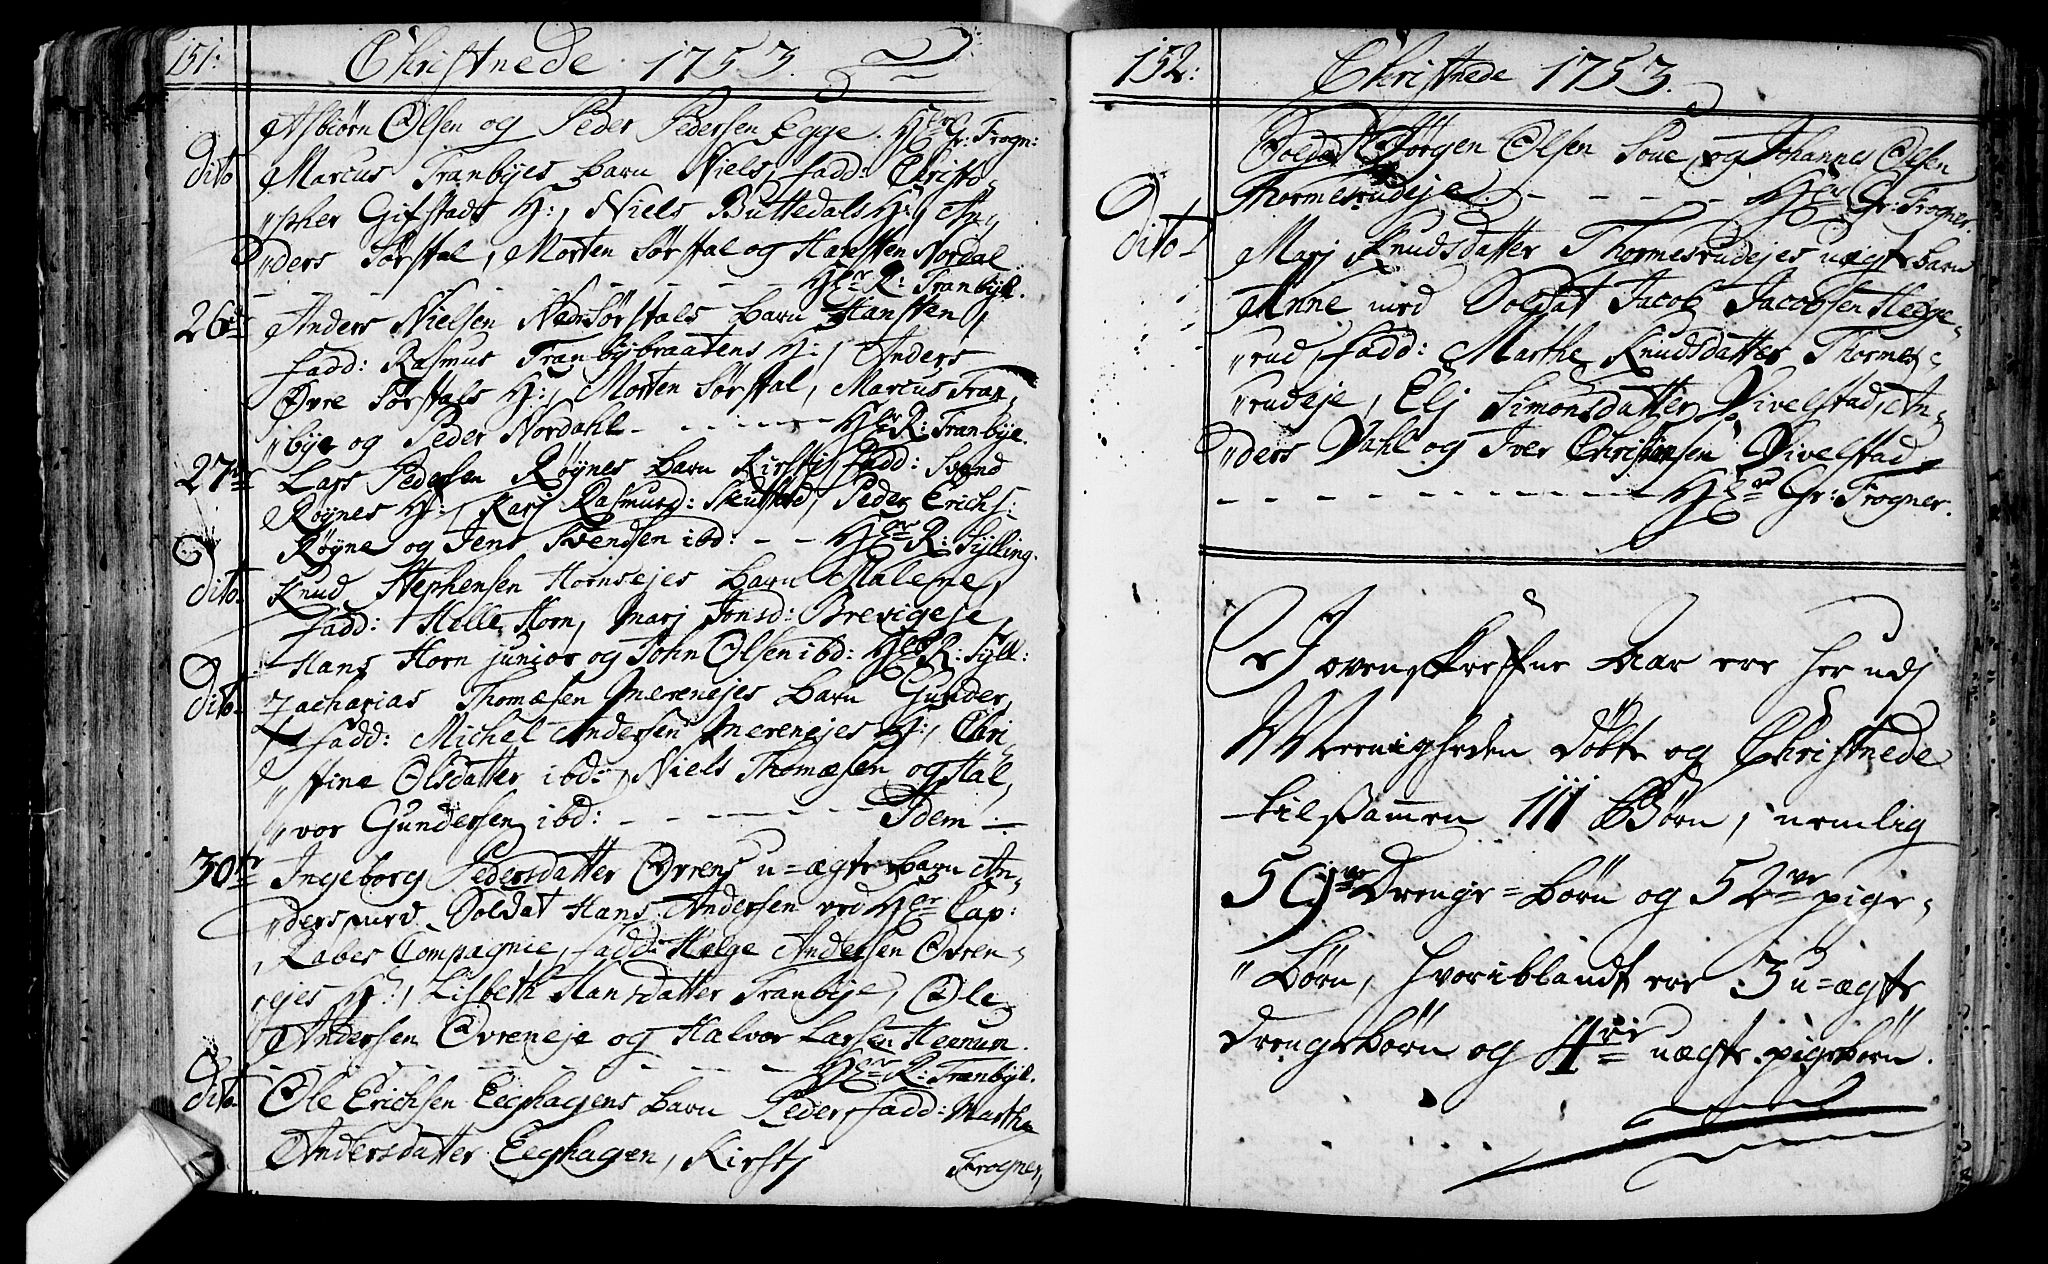 151:
Christnede 1753.
Asbiørn Olsen og Peder Pedersen Egge. Hr Gr: Frogn:
dito Marcus Tranbyes barn Niels, fadd: Christo-
"pher Gifstads H:, Niels Buttedals H:, An-
"ders Sørstal, Morten Sørstal og Hansten Nordal
- - - - - - - Hr R: Tranbye.
26de Anders Nielsen NedrSørstals barn Hansten,
fadd: Rasmus Tranbybraatens H:, Anders
Øvre Sørstals H:, Morten Sørstal, Marcus Tran-
"bye og Peder Nordahl - - - - - Hr R: Tranbye.
27de Lars Pedersen Røynes barn Kirstj, fadd: Svend
Røynes H:, Karj Rasmusd: Skustad, Peder Erichs:
Røyne og Jens Svendsen ibd: - - Hr R: Sylling.
dito Knud Stephensen Hornsejes barn Malene,
fadd: Helle Horn, Marj Jonsd: Brevigeje,
Hans Horn junior og John Olsen ibd: Hr R: Syll:
Dito Zacharias Thomæsen Merenejes barn Gunder,
fadd: Michel Andersen Merenejes H:, Chri-
"stine Olsdatter ibd:, Niels Thomæsen og Hal-
"vor Gundersen ibd: - - - - - - Idem
30te Ingeborg Pedersdatter Ovrens u=ægte barn An-
"ders med Soldat Hans Andersen ved Hr Cap:
Rabes Compagnie, fadd: Helge Andersen Ovren-
"ejes H:, Lisbeth Hansdatter Tranbye, Ole
Andersen Ovreneje og Halvor Larsen Heenum.
- - - - - - - - Hr R: Tranbye.
Dito Ole Erichsen Eeghagens barn Peder, fadd: Marthe
Andersdatter Eeghagen, Kirstj
Frogner,
152:
Christnede 1753.
Soldat Jørgen Olsen Soue og Johannes Olsen
Thormesrudeje - - - - - Hr Gr: Frogner.
dito Marj Knudsdatter Thormesrudejes uægte barn
Anne med Soldat Jacob Jacobsen Hegge-
"rud, fadd: Marthe Knudsdatter Thormes-
"rudeje, Elj Simonsdatter Vivelstad, An-
"ders Dahl og Iver Christensen Vivelstad
- - - - - - - - - - Hr Gr: Frogner.
I ovenskrefne Aar ere her udj
Meenigheden døbte og Christnede
tilsammen 111 Børn, nemlig
59ve Drenge=børn og 52ve pige-
"børn, hvoriblandt ere 3 u=ægte
drengebørn og 4re uægte pigebørn.